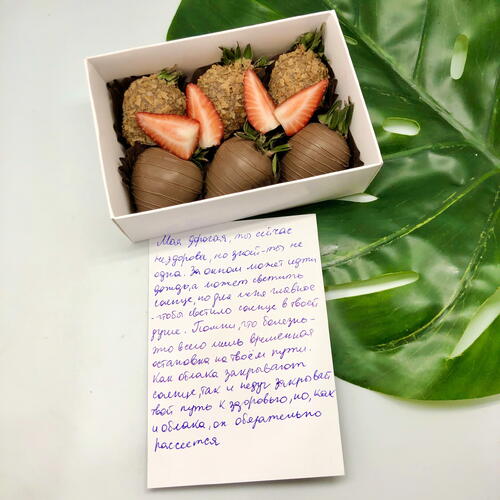 Моя дорогая, ты сейчас
нездорова, но знай - ты не
одна. За окном может идти
дождь, а может светить
солнце, но для меня главное
- чтобы светило солнце в твоей
душе. Помни, что болезнь-
это всего лишь временная
остановка на твоём пути.
Как облака закрывают
солнце, так и недуг закрывает
твой путь к здоровью, но, как
и облака, он обязательно
рассеется